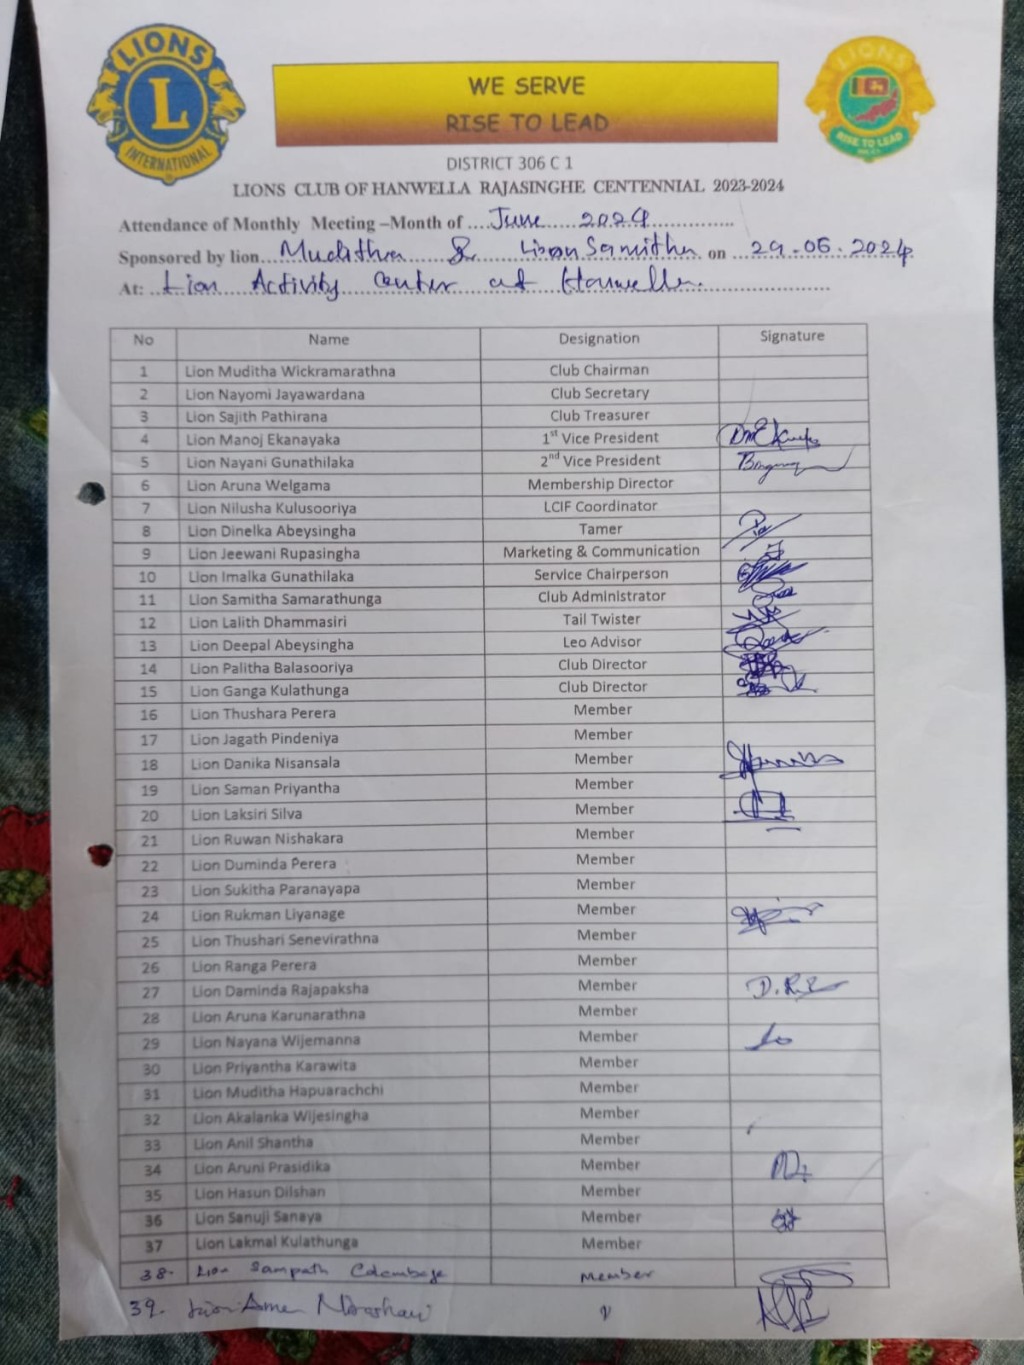 LIONS
L
INTERNATIONAL
WE SERVE
RISE TO LEAD
LIONS
RISE TO LEAD
DISTRICT 306 C 1
LIONS CLUB OF HANWELLA RAJASINGHE CENTENNIAL 2023-2024
Attendance of Monthly Meeting –Month of ....June....2024..............
Sponsored by lion...Muditha....&....Lion Samitha. on ...29.06.2024
At: ..Lion Activity Center at Hanwella......................
No Name Designation Signature
1 Lion Muditha Wickramarathna Club Chairman
2 Lion Nayomi Jayawardana Club Secretary
3 Lion Sajith Pathirana Club Treasurer
4 Lion Manoj Ekanayaka 1st Vice President
5 Lion Nayani Gunathilaka 2nd Vice President
6 Lion Aruna Welgama Membership Director
7 Lion Nilusha Kulusooriya LCIF Coordinator
8 Lion Dinelka Abeysingha Tamer
9 Lion Jeewani Rupasingha Marketing & Communication
10 Lion Imalka Gunathilaka Service Chairperson
11 Lion Samitha Samarathunga Club Administrator
12 Lion Lalith Dhammasiri Tail Twister
13 Lion Deepal Abeysingha Leo Advisor
14 Lion Palitha Balasooriya Club Director
15 Lion Ganga Kulathunga Club Director
16 Lion Thushara Perera Member
17 Lion Jagath Pindeniya Member
18 Lion Danika Nisansala Member
19 Lion Saman Priyantha Member
20 Lion Laksiri Silva Member
21 Lion Ruwan Nishakara Member
22 Lion Duminda Perera Member
23 Lion Sukitha Paranayapa Member
24 Lion Rukman Liyanage Member
25 Lion Thushari Senevirathna Member
26 Lion Ranga Perera Member
27 Lion Daminda Rajapaksha Member D.R.
28 Lion Aruna Karunarathna Member
29 Lion Nayana Wijemanna Member
30 Lion Priyantha Karawita Member
31 Lion Muditha Hapuarachchi Member
32 Lion Akalanka Wijesingha Member
33 Lion Anil Shantha Member
34 Lion Aruni Prasidika Member
35 Lion Hasun Dilshan Member
36 Lion Sanuji Sanaya Member
37 Lion Lakmal Kulathunga Member
38. Lion Sampath Colambage Member
39. Lion